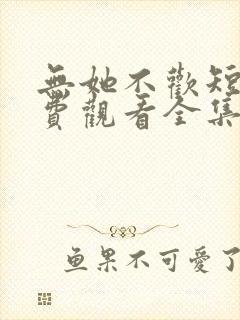 無她不歡短
費觀看全集
鱼果不可愛了